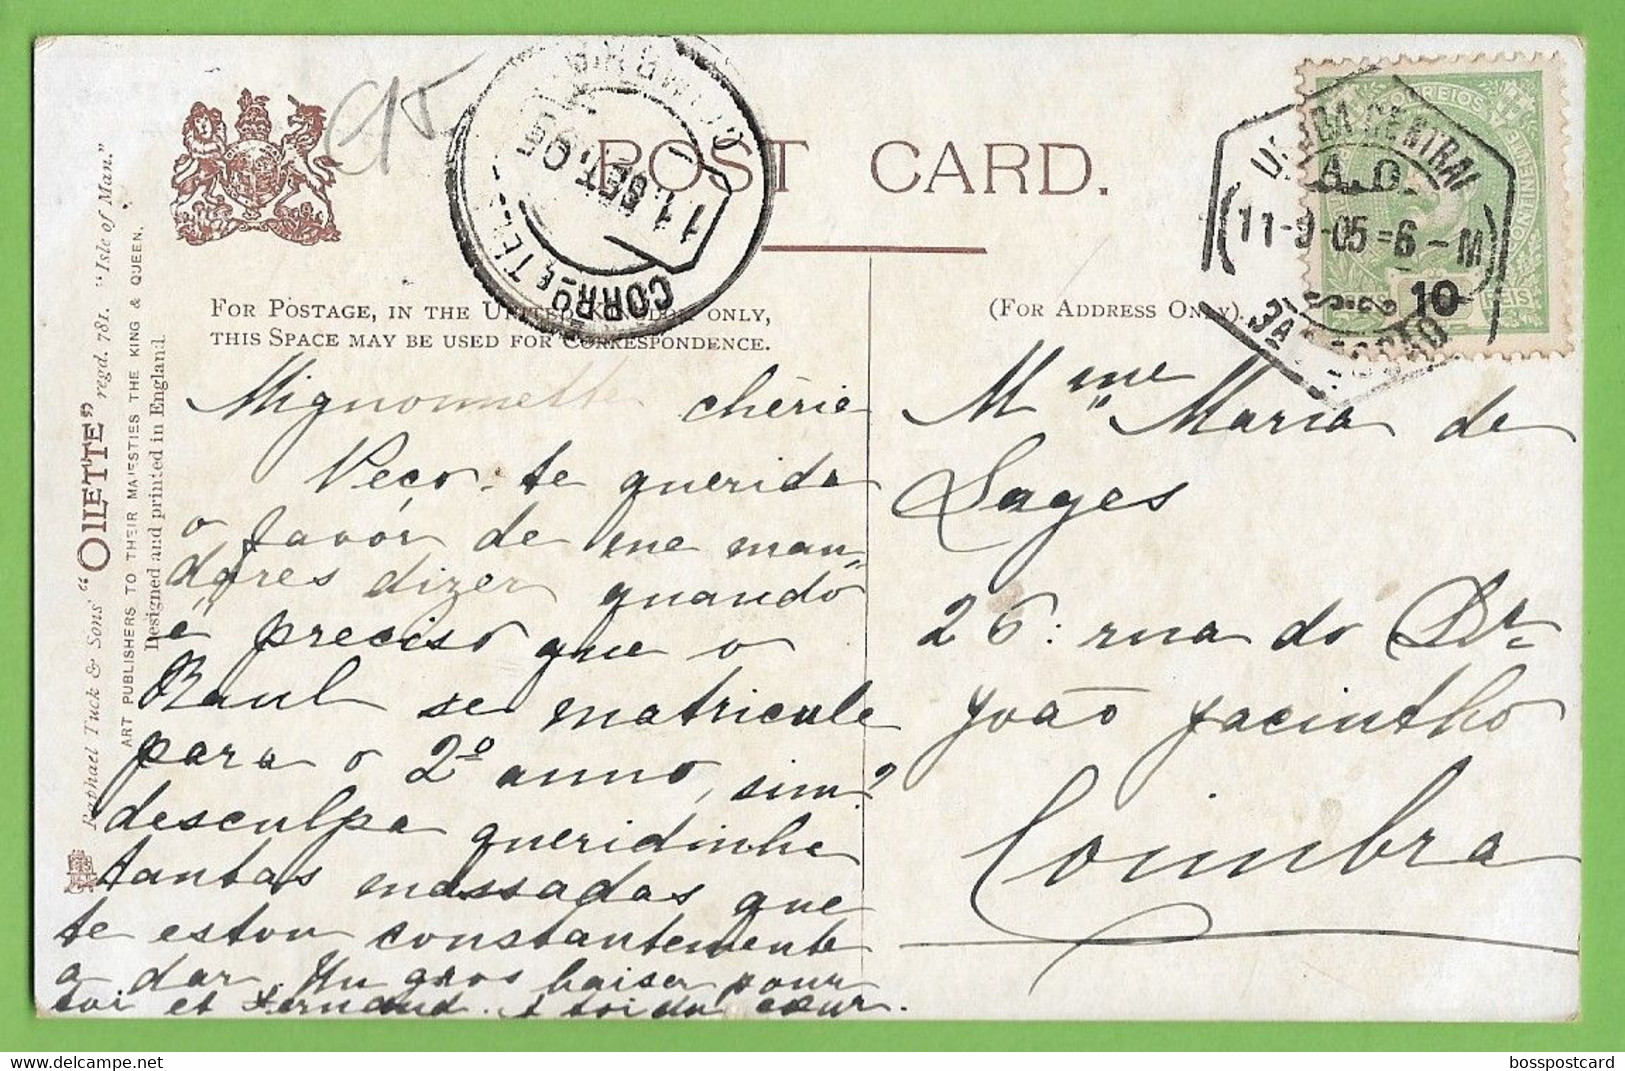 C95
POST CARD.
FOR POSTAGE, IN THE UNITED KINGDOM ONLY,
THIS SPACE MAY BE USED FOR CORRESPONDENCE.
(FOR ADDRESS ONLY).
COIMBRA
11 SET 05
CORRO E TEL
CENTRAL
11-9-05=6-M
3A SECÇÃO
CORREIOS
CONTINENTE
REIS
10
Raphael Tuck & Sons' "OILETTE" regd. 781. "Isle of Man."
ART PUBLISHERS TO THEIR MAJESTIES THE KING & QUEEN.
Designed and printed in England.
Mignonnette chérie
Peço-te querida
o favór de me man„
dares dizer quando
é preciso que o
Raul se matricule
para o 2º anno, sim?
desculpa queridinha
tantas massadas que
te estou constantemente
a dar. Un gros baiser pour
toi et Fernand. A toi du cœur.
Mme Maria de
Lages
26: rua do Dr.
João Jacintho
Coimbra
bosspostcard